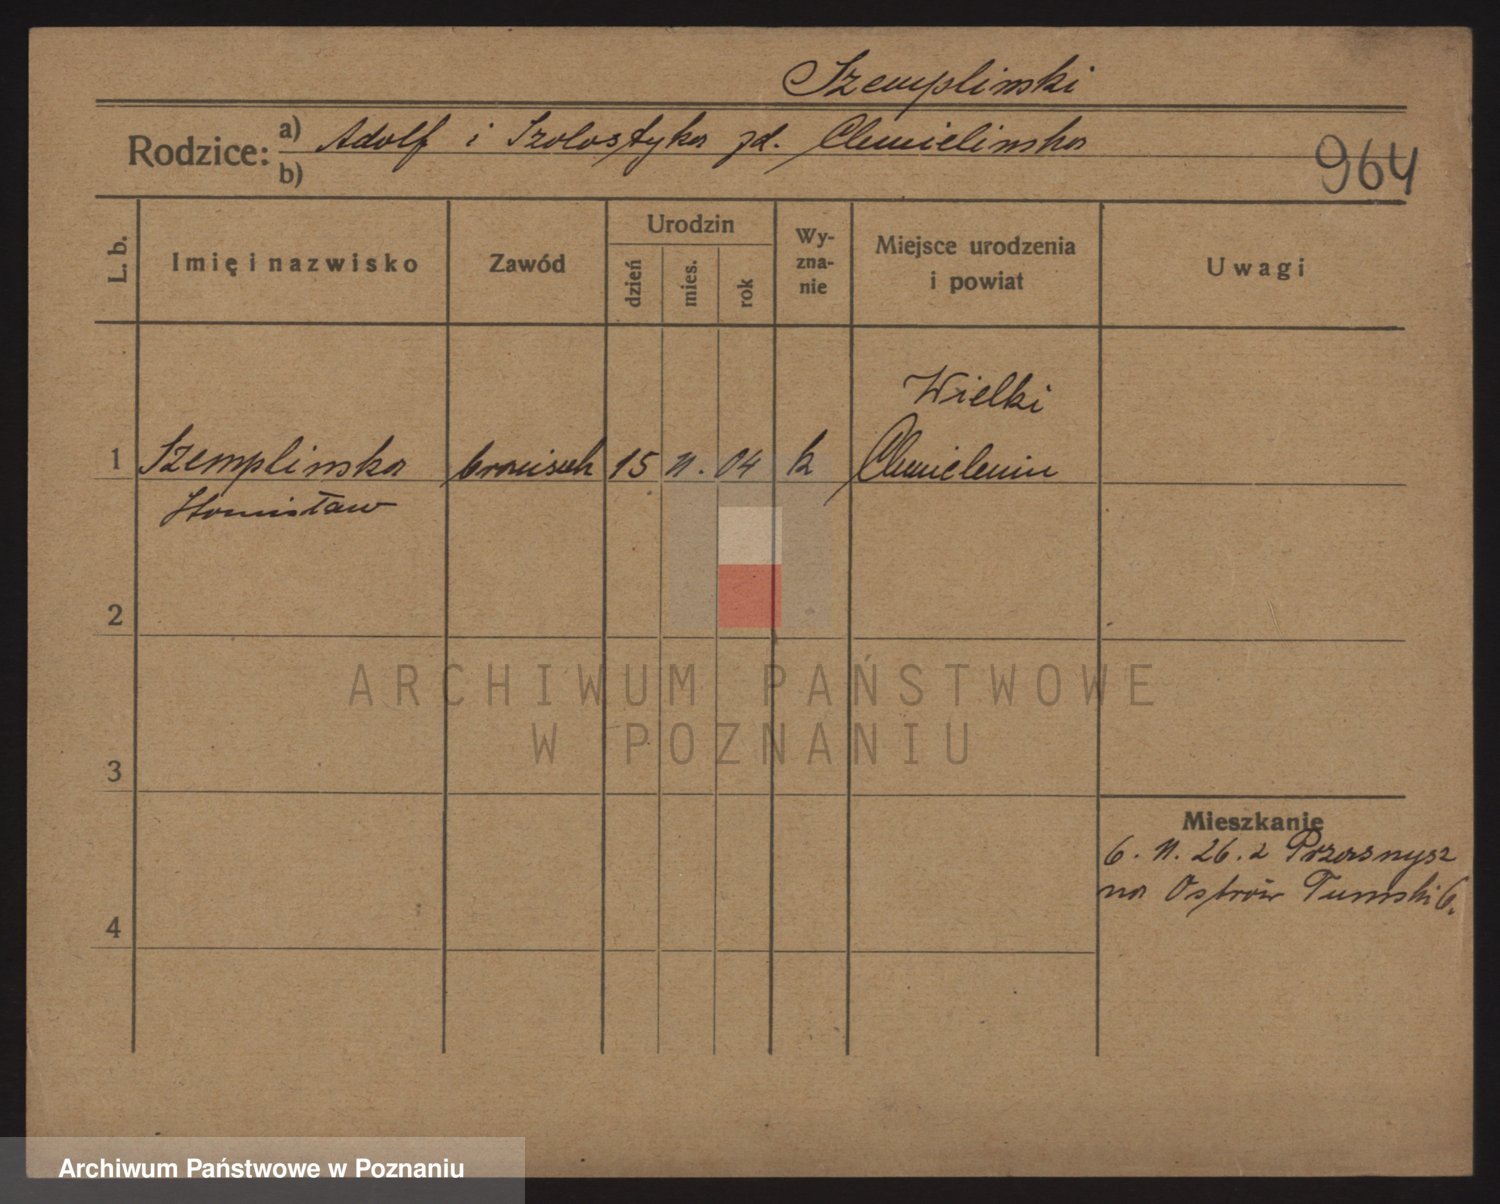 Szemplinski
Rodzice: a) Adolf i Szolostyka zd. Chmielinska
b)
964
L. b.
Imię i nazwisko
Zawód
Urodzin
dzień
mies.
rok
Wy-
zna-
nie
Miejsce urodzenia
i powiat
Uwagi
Wielki
1 Szemplinska 15 11. 04 k
Stanisław
2
ARCHIWUM PAŃSTWOWE
W POZNANIU
3
Mieszkanie
6. 11. 26. z Przasnysz
na Ostrów Tumski 6.
4
Archiwum Państwowe w Poznaniu